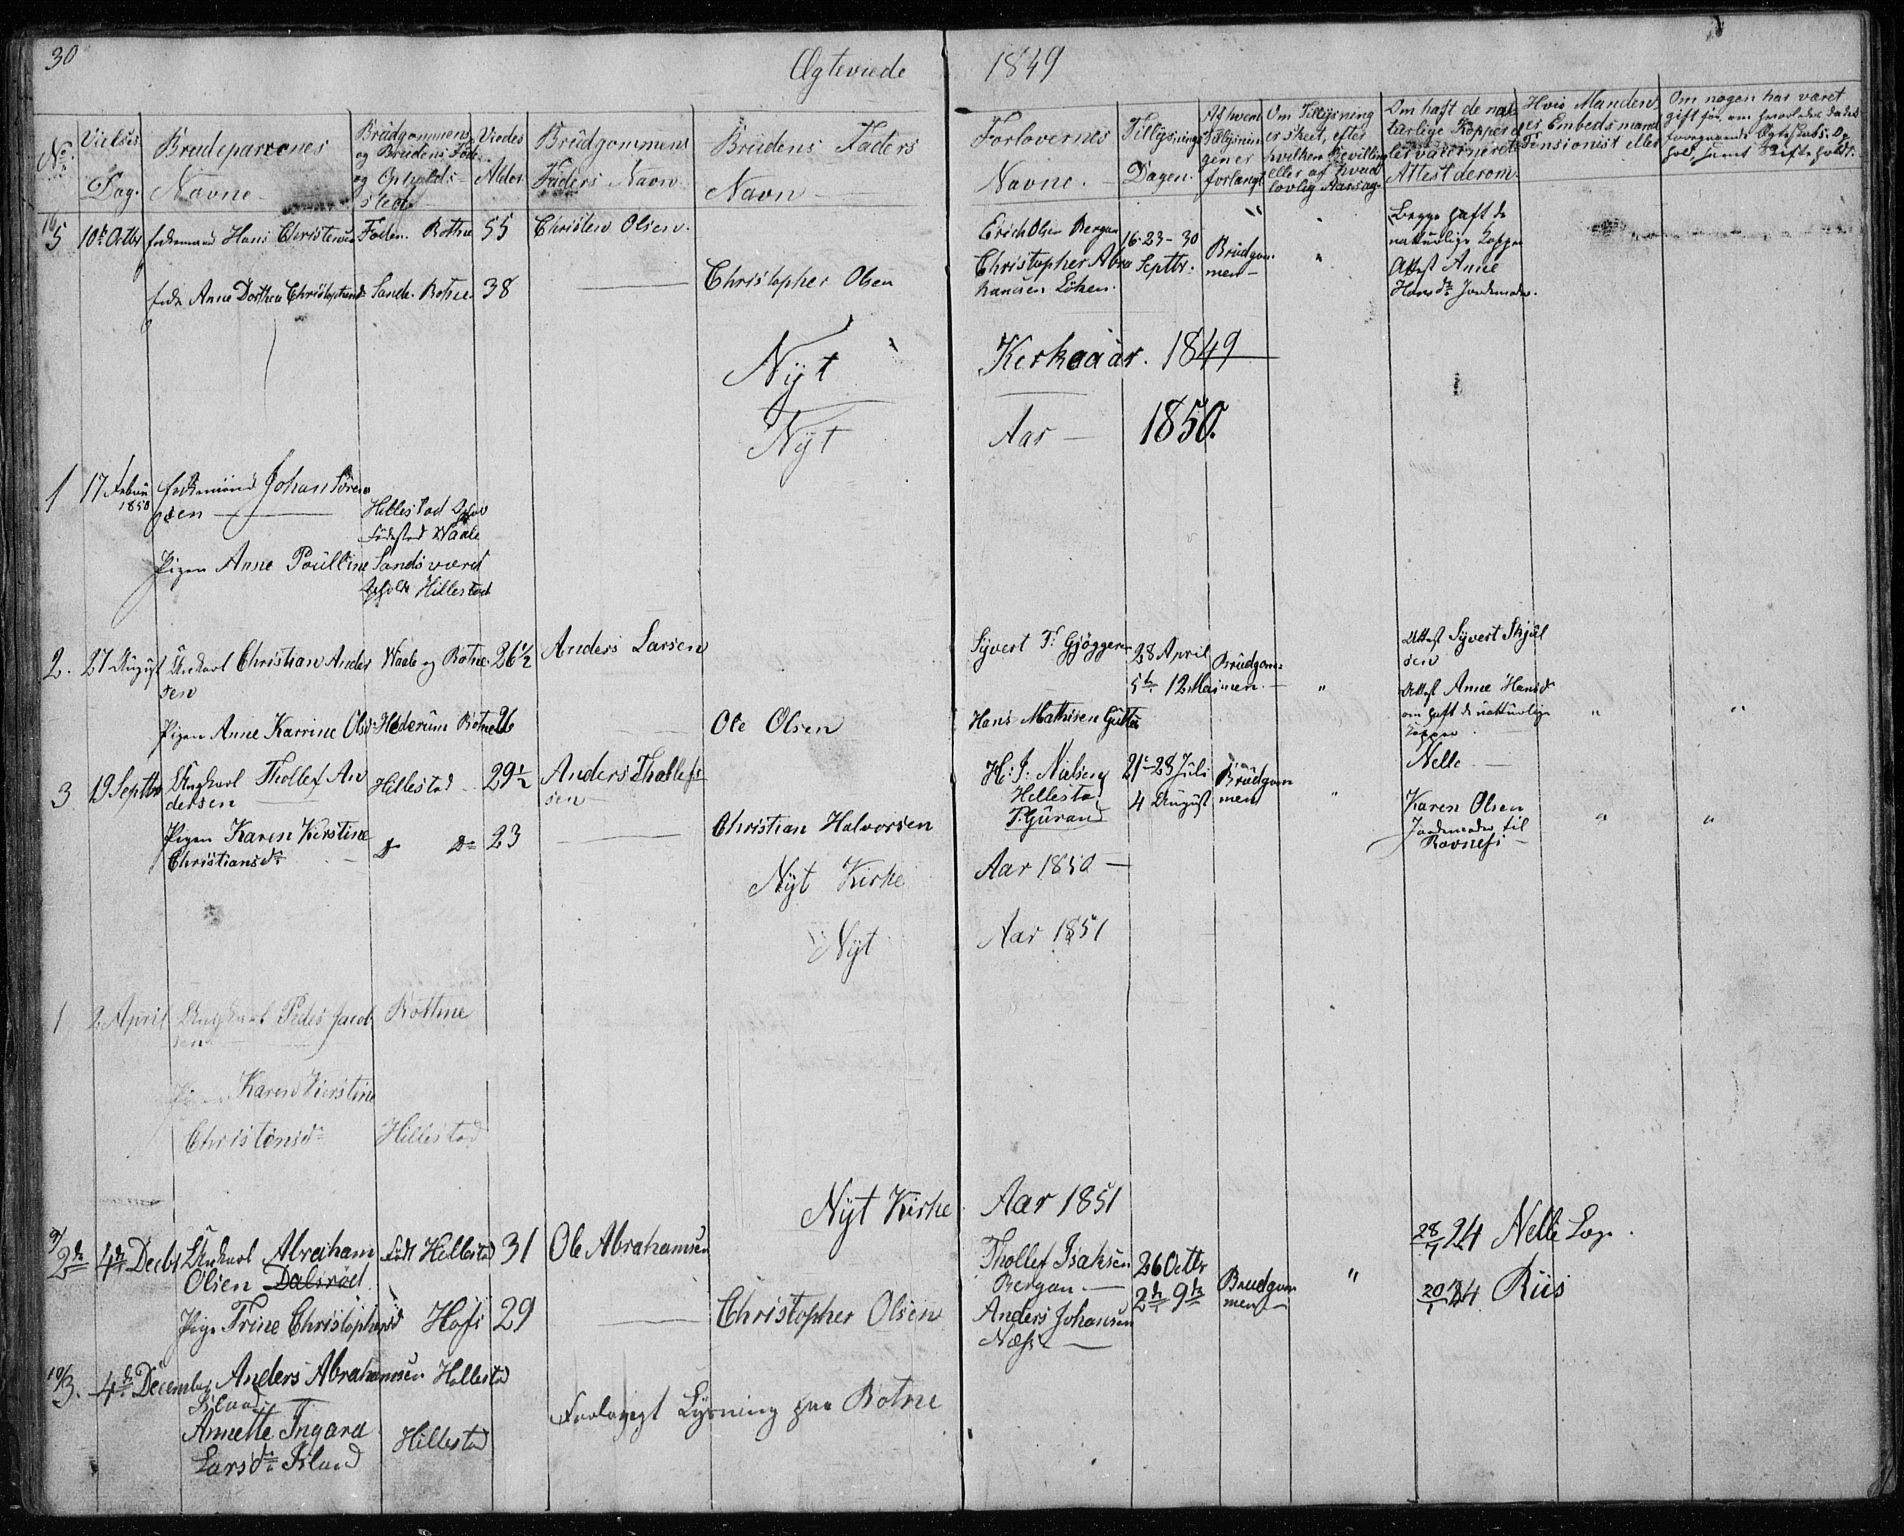 30 Ægteviede 1849
No: Vielses Dag. Brudeparrenes Navne. Brüdgommens og Brüdens Føde og Opholds-sted. Viedes Alder Brüdgommens Faders Navn. Brüdens Faders Navn
Forlovernes Navne. Tillysnings Dagen. Af hvem Tillysningen er forlangt Om Tillysning er skeet, efter hvilken Bevilling eller af hvad lovlig Aarsag. Om haft de naturlige Kopper eller vaccineret Attest derom. Hvis Manden er Embedsmand Pensionist eller Om nogen har været gift før
5 10de Octbr Enkemand Hans Christensen Foden. Botne 55 Christen Olsen.
Erich Olsen Bergan 16-23-30 Septbr: Brudgommen — " Begge haft de naturlige Kopper
Enke Anne Dorthea Christophersd Sande. Botne. 38 Christopher Olsen
Christopher Abrahamsen Löken. Attest Anne Hansdr Jordemoder.
Nÿt Kerkeaar. 1849
Nÿt Aar — 1850.
1 17 Febru 1850 Enkemand Johan Sörensen Hillestad Ophold Födested Waale
Pigen Anne Poulline Sandsværd Ophold Hillestad
2. 27 August Ungkarl Christian Andersen Waale og Botne 26½ Anders Larsen
Syvert T. Gjøggeren 28 April 5te 12 Mai Brüdgommen. — " Attest Syvert Skjulsen
Pigen Anne Karrine Olsdr Hederum Botne 26 Ole Olsen
Hans Mathisen Gutter Attest Anne Hansdr om haft de naturlige Kopper " "
3 19 Septbr Ungkarl Thollef Andersen Hillestad 29½ Anders Thollefsen
H: J: Nielsen Hillestad T: Gürand 21-28 Juli 4 August Brüdgommen " Nelle —
Pigen Karen Kirstine Christiansdr do do 23 Christian Halvorsen
Karen Olsen Jordemoder til Ravnefs — " "
Nÿt Kirke Aar 1850 —
Nÿt Aar 1851
1 2 April Ungkarl Peder Jacobsen Bottne
Pigen Karen Kirstine
Christensdr Hillestad
Nÿt Kirke Aar 1851
9/2de 4de Decbr Ungkarl Abraham Olsen Dalsröd Födt Hillestad 31 Ole Abrahamsen
Thollef Isaksen Bergan — 26 Octbr 2de 9de Brudgommen " 28/7 24 Nelle
Pige Trine Christophersd Hofs 29 Christopher Olsen
Anders Johansen Næfs — 20/1 24 Riis
10/3. 4de December Anders Abrahamsen Island Hillestad
Annette Ingard Larsdr Island Hillestad
Forlangt Lysning paa Botne